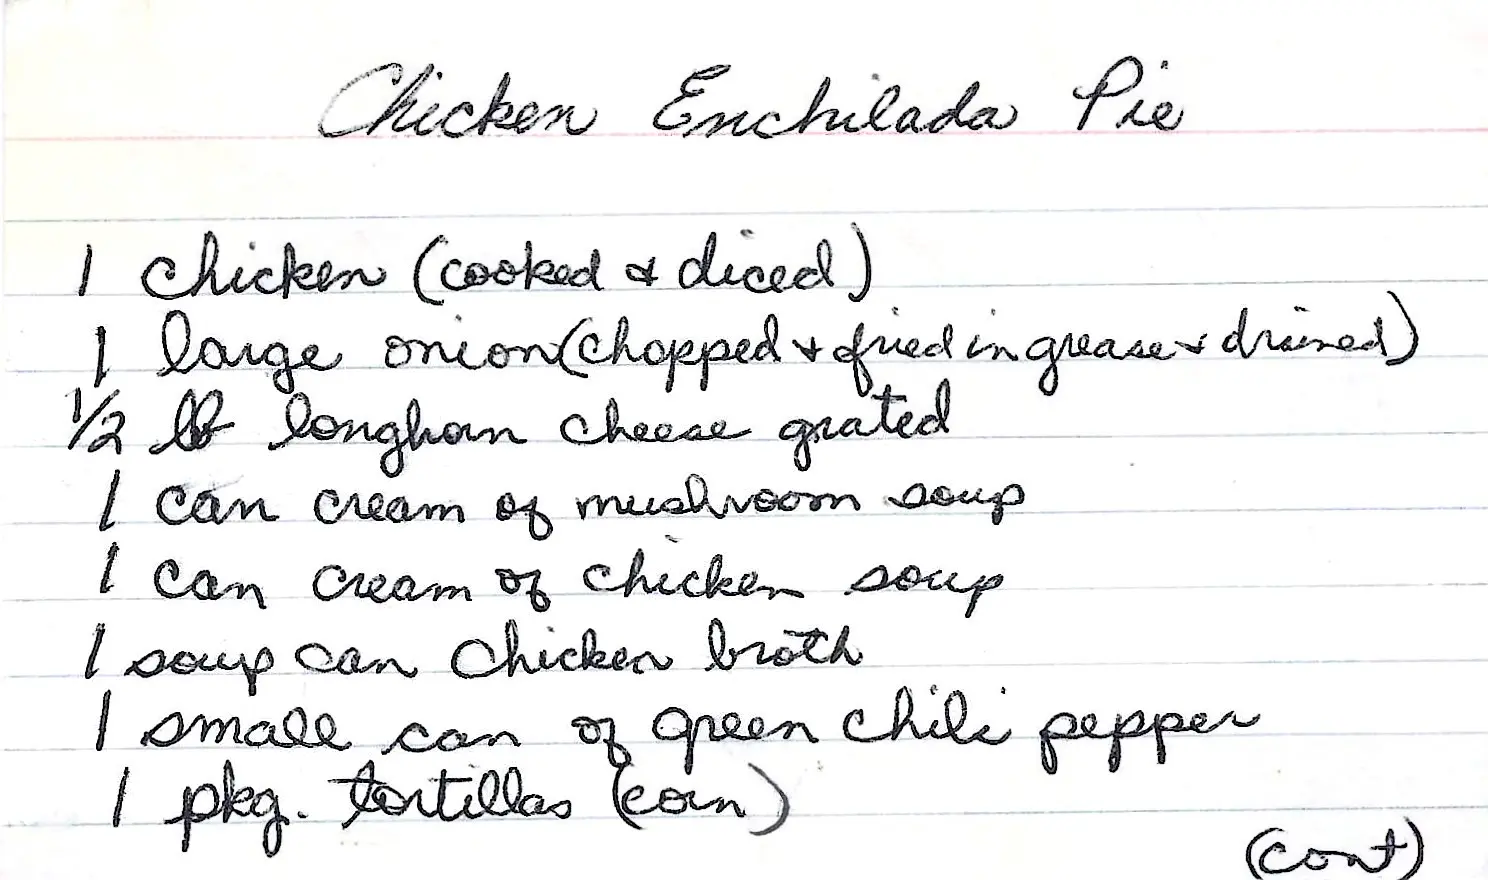 Chicken Enchilada Pie
1 chicken (cooked & diced)
1 large onion (chopped & fried in grease & drained)
1/2 lb longhorn cheese grated
1 can cream of mushroom soup
1 can cream of chicken soup
1 soup can chicken broth
1 small can of green chili pepper
1 pkg. tortillas (corn)
(cont)